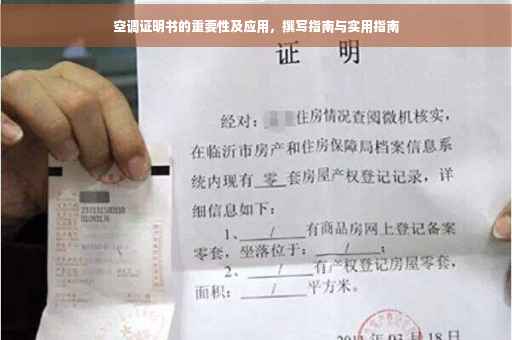 空调证明书的重要性及应用，撰写指南与实用指南
证 明
经对： 住房情况查阅微机核实，
在临沂市房产和住房保障局档案信息系
统内现有 零 套房屋产权登记记录，详
细信息如下：
1、 / 有商品房网上登记备案
零套，坐落位于： / ；
2、 / 有产权登记房屋零套，
面积： / 平方米。
月 18 日